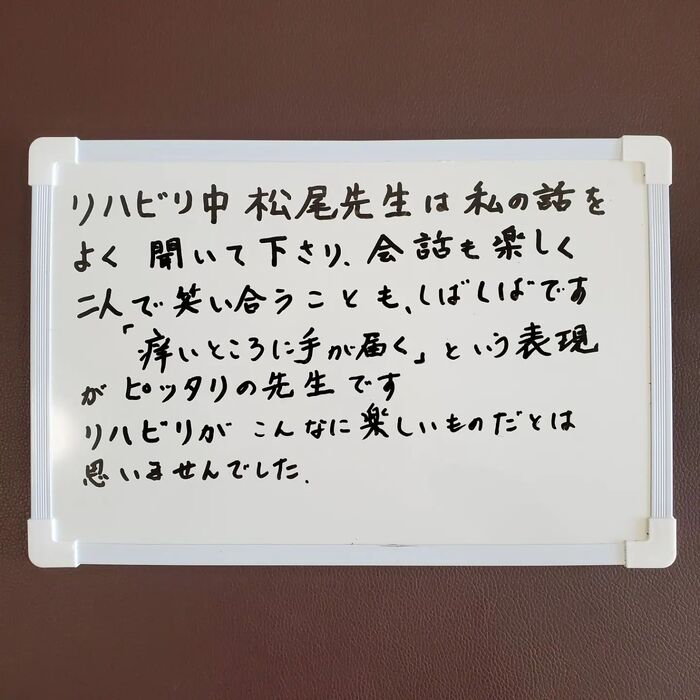 リハビリ中 松尾先生は私の話を
よく聞いて下さり、会話も楽しく
二人で笑い合うことも、しばしばです
「痒いところに手が届く」という表現
がピッタリの先生です
リハビリがこんなに楽しいものだとは
思いませんでした.